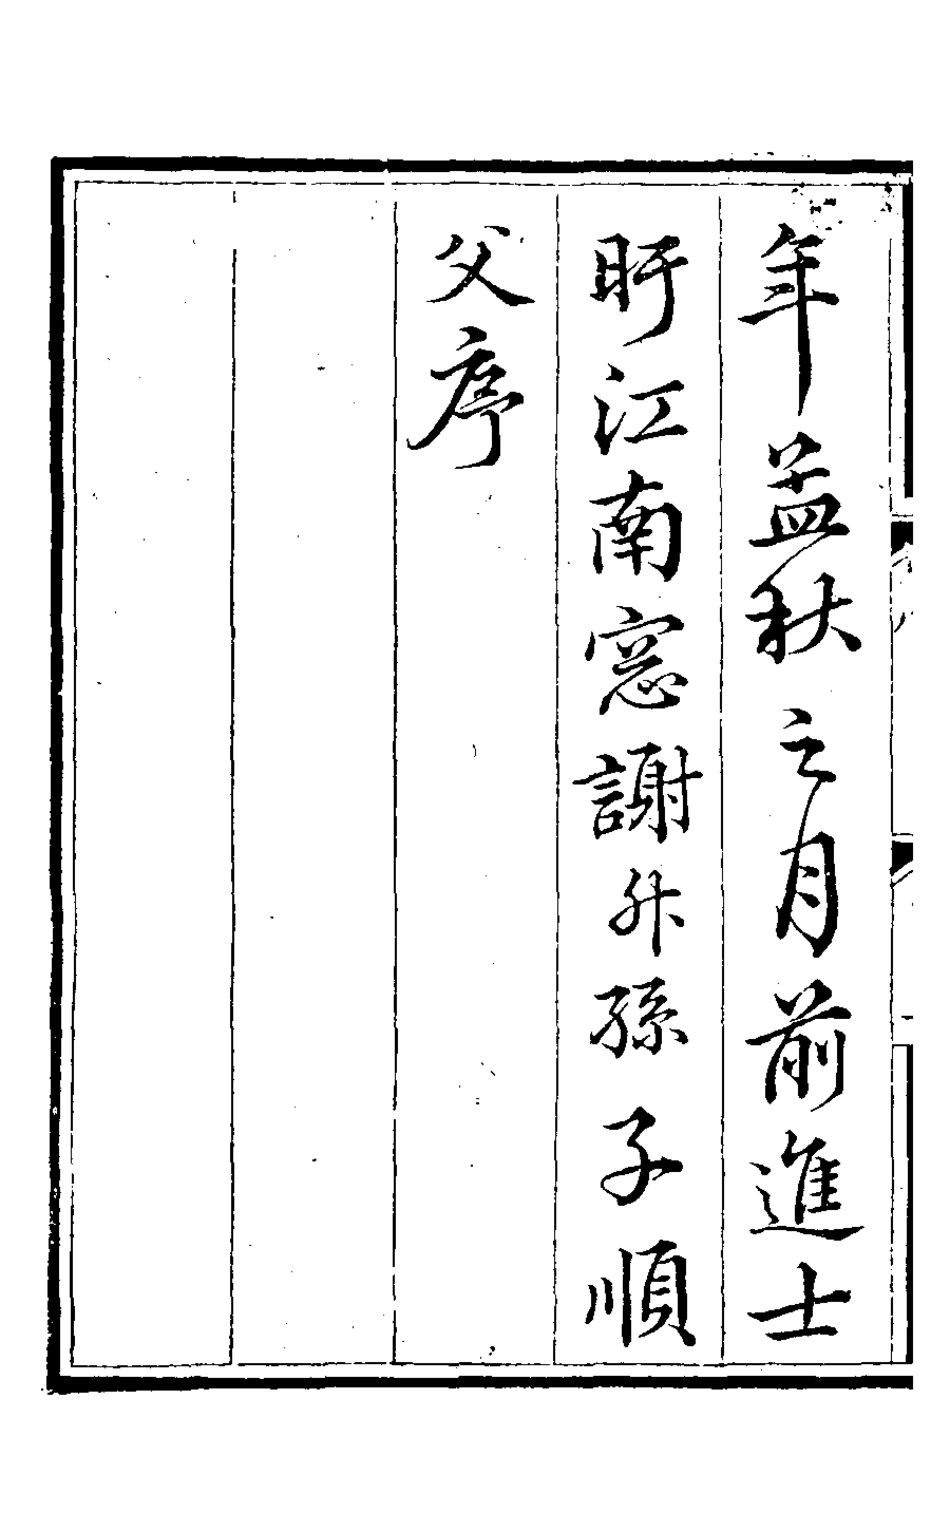 年孟秋之月前進士
盱江南窓謝升孫子順
父序